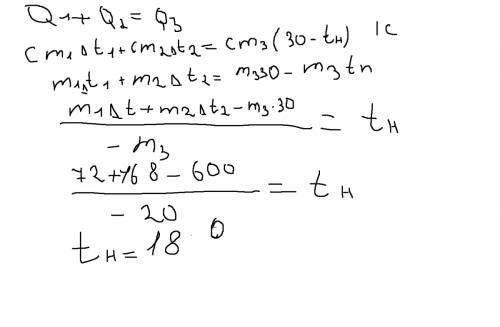 Q₁+ Q₂ = Q₃
cm₁Δt₁+cm₂Δt₂= cm₃(30-tн) |c
m₁Δt₁ + m₂Δt₂= m₃30- m₃tn
m₁Δt+m₂Δt₂-m₃·30 / -m₃ = tн
72+168-600 / -20 = tн
tн=18 0